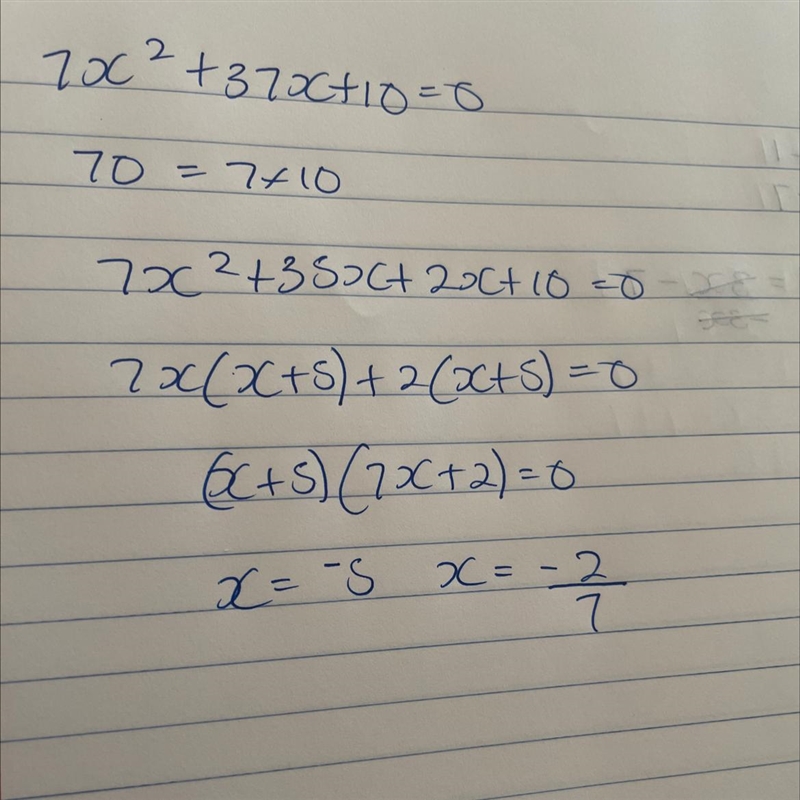 7x² + 37x + 10 = 0
70 = 7 × 10
7x² + 35x + 2x + 10 = 0
7x(x + 5) + 2(x + 5) = 0
(x + 5)(7x + 2) = 0
x = -5 x = -2/7